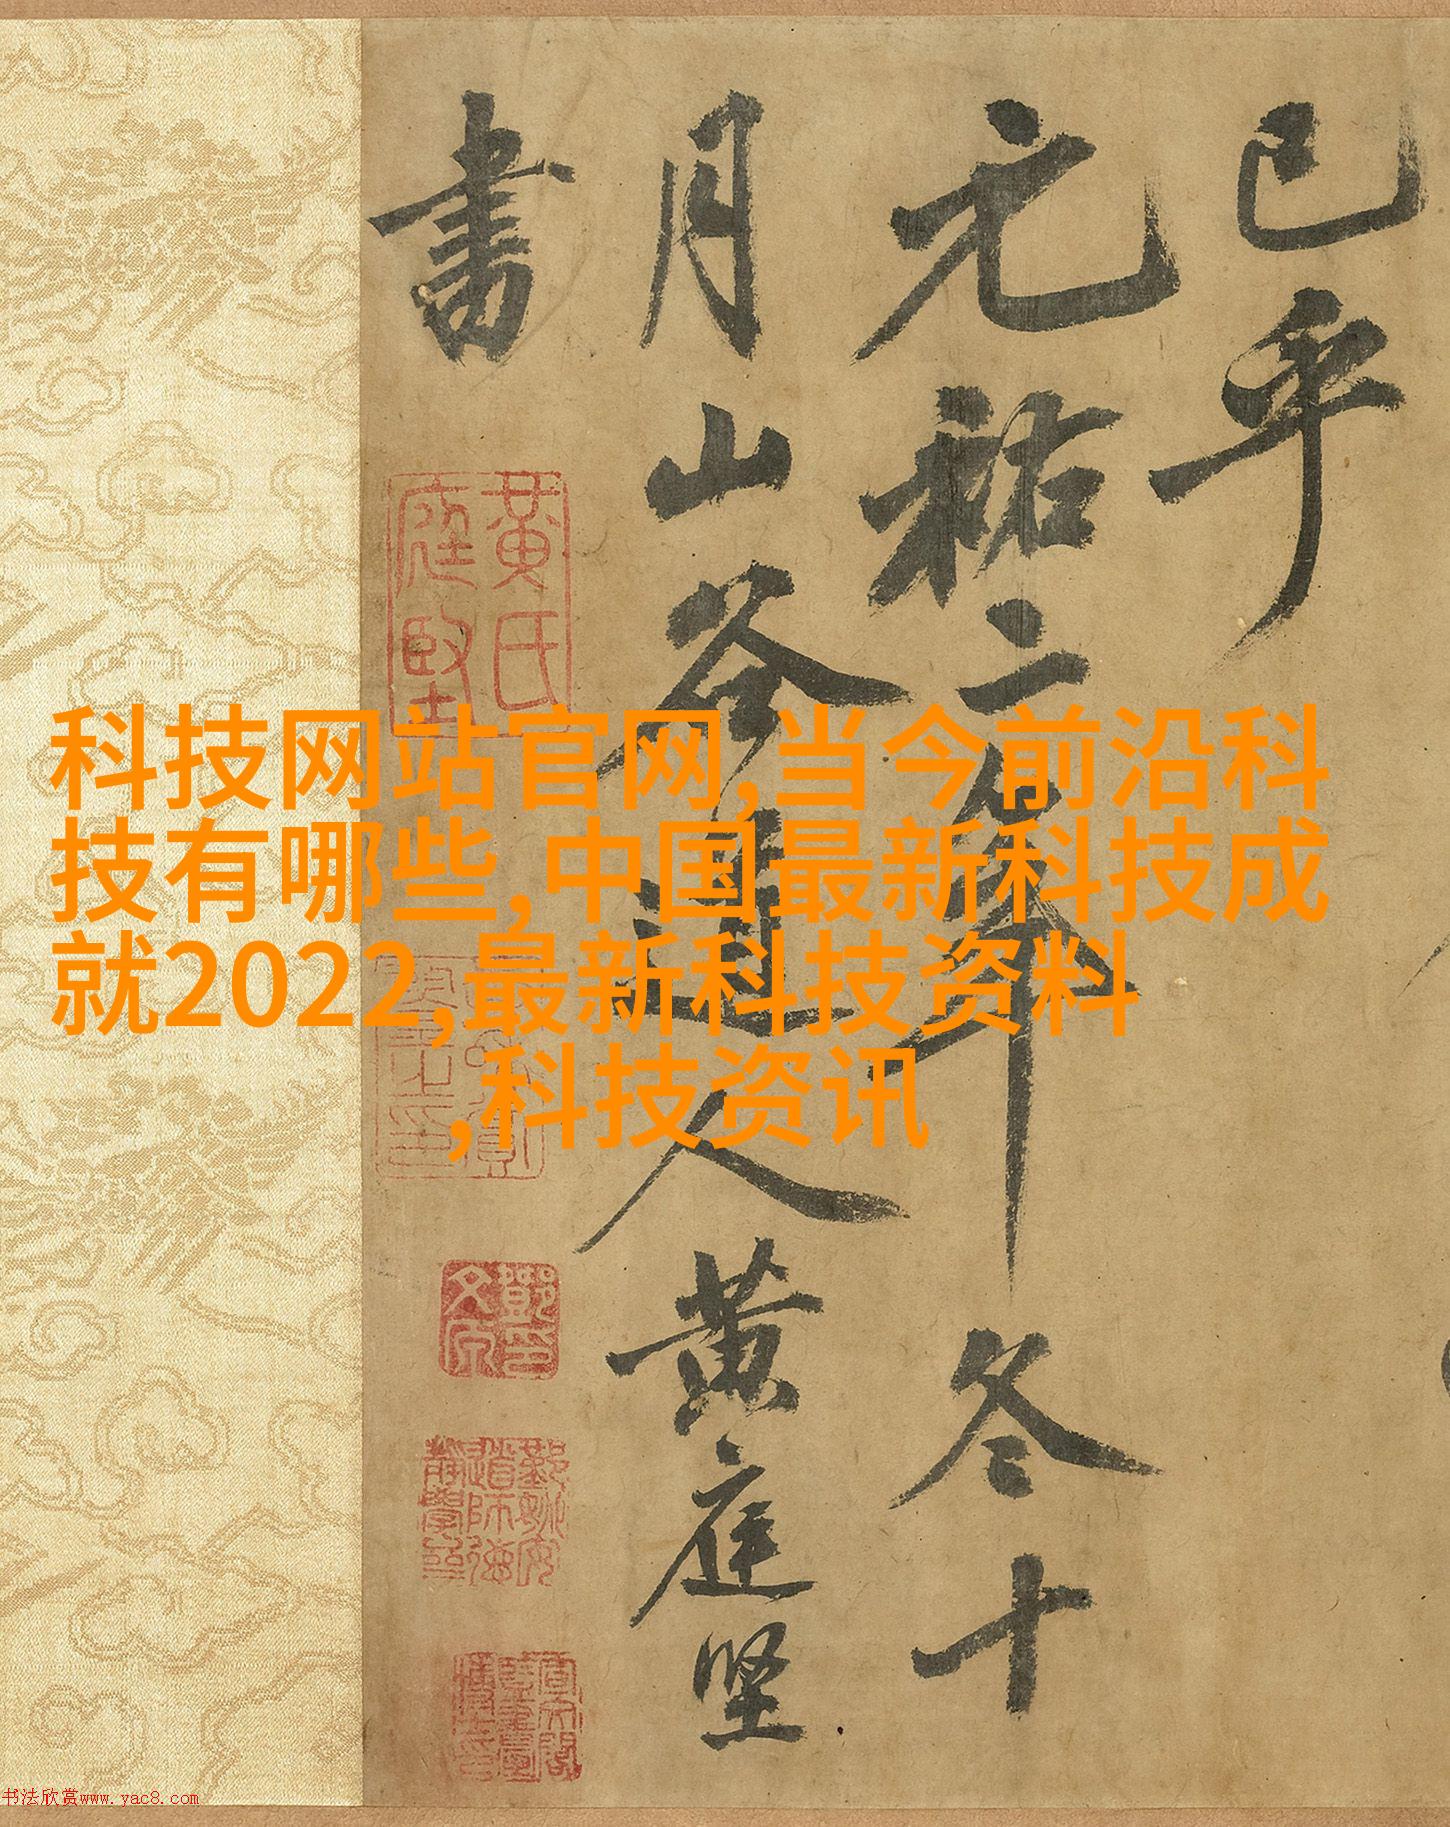 已乎
元祐二年冬十
月山谷道人黄庭坚
書
黄氏
庭堅
科技网站官网,当今前沿科
技有哪些,中国最新科技成
就2022,最新科技资料
,科技资讯
书法欣赏www.yac8.com